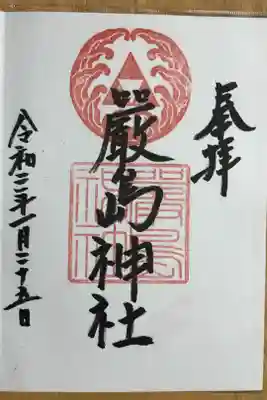 奉拝
嚴島神社
令和二年一月二十五日